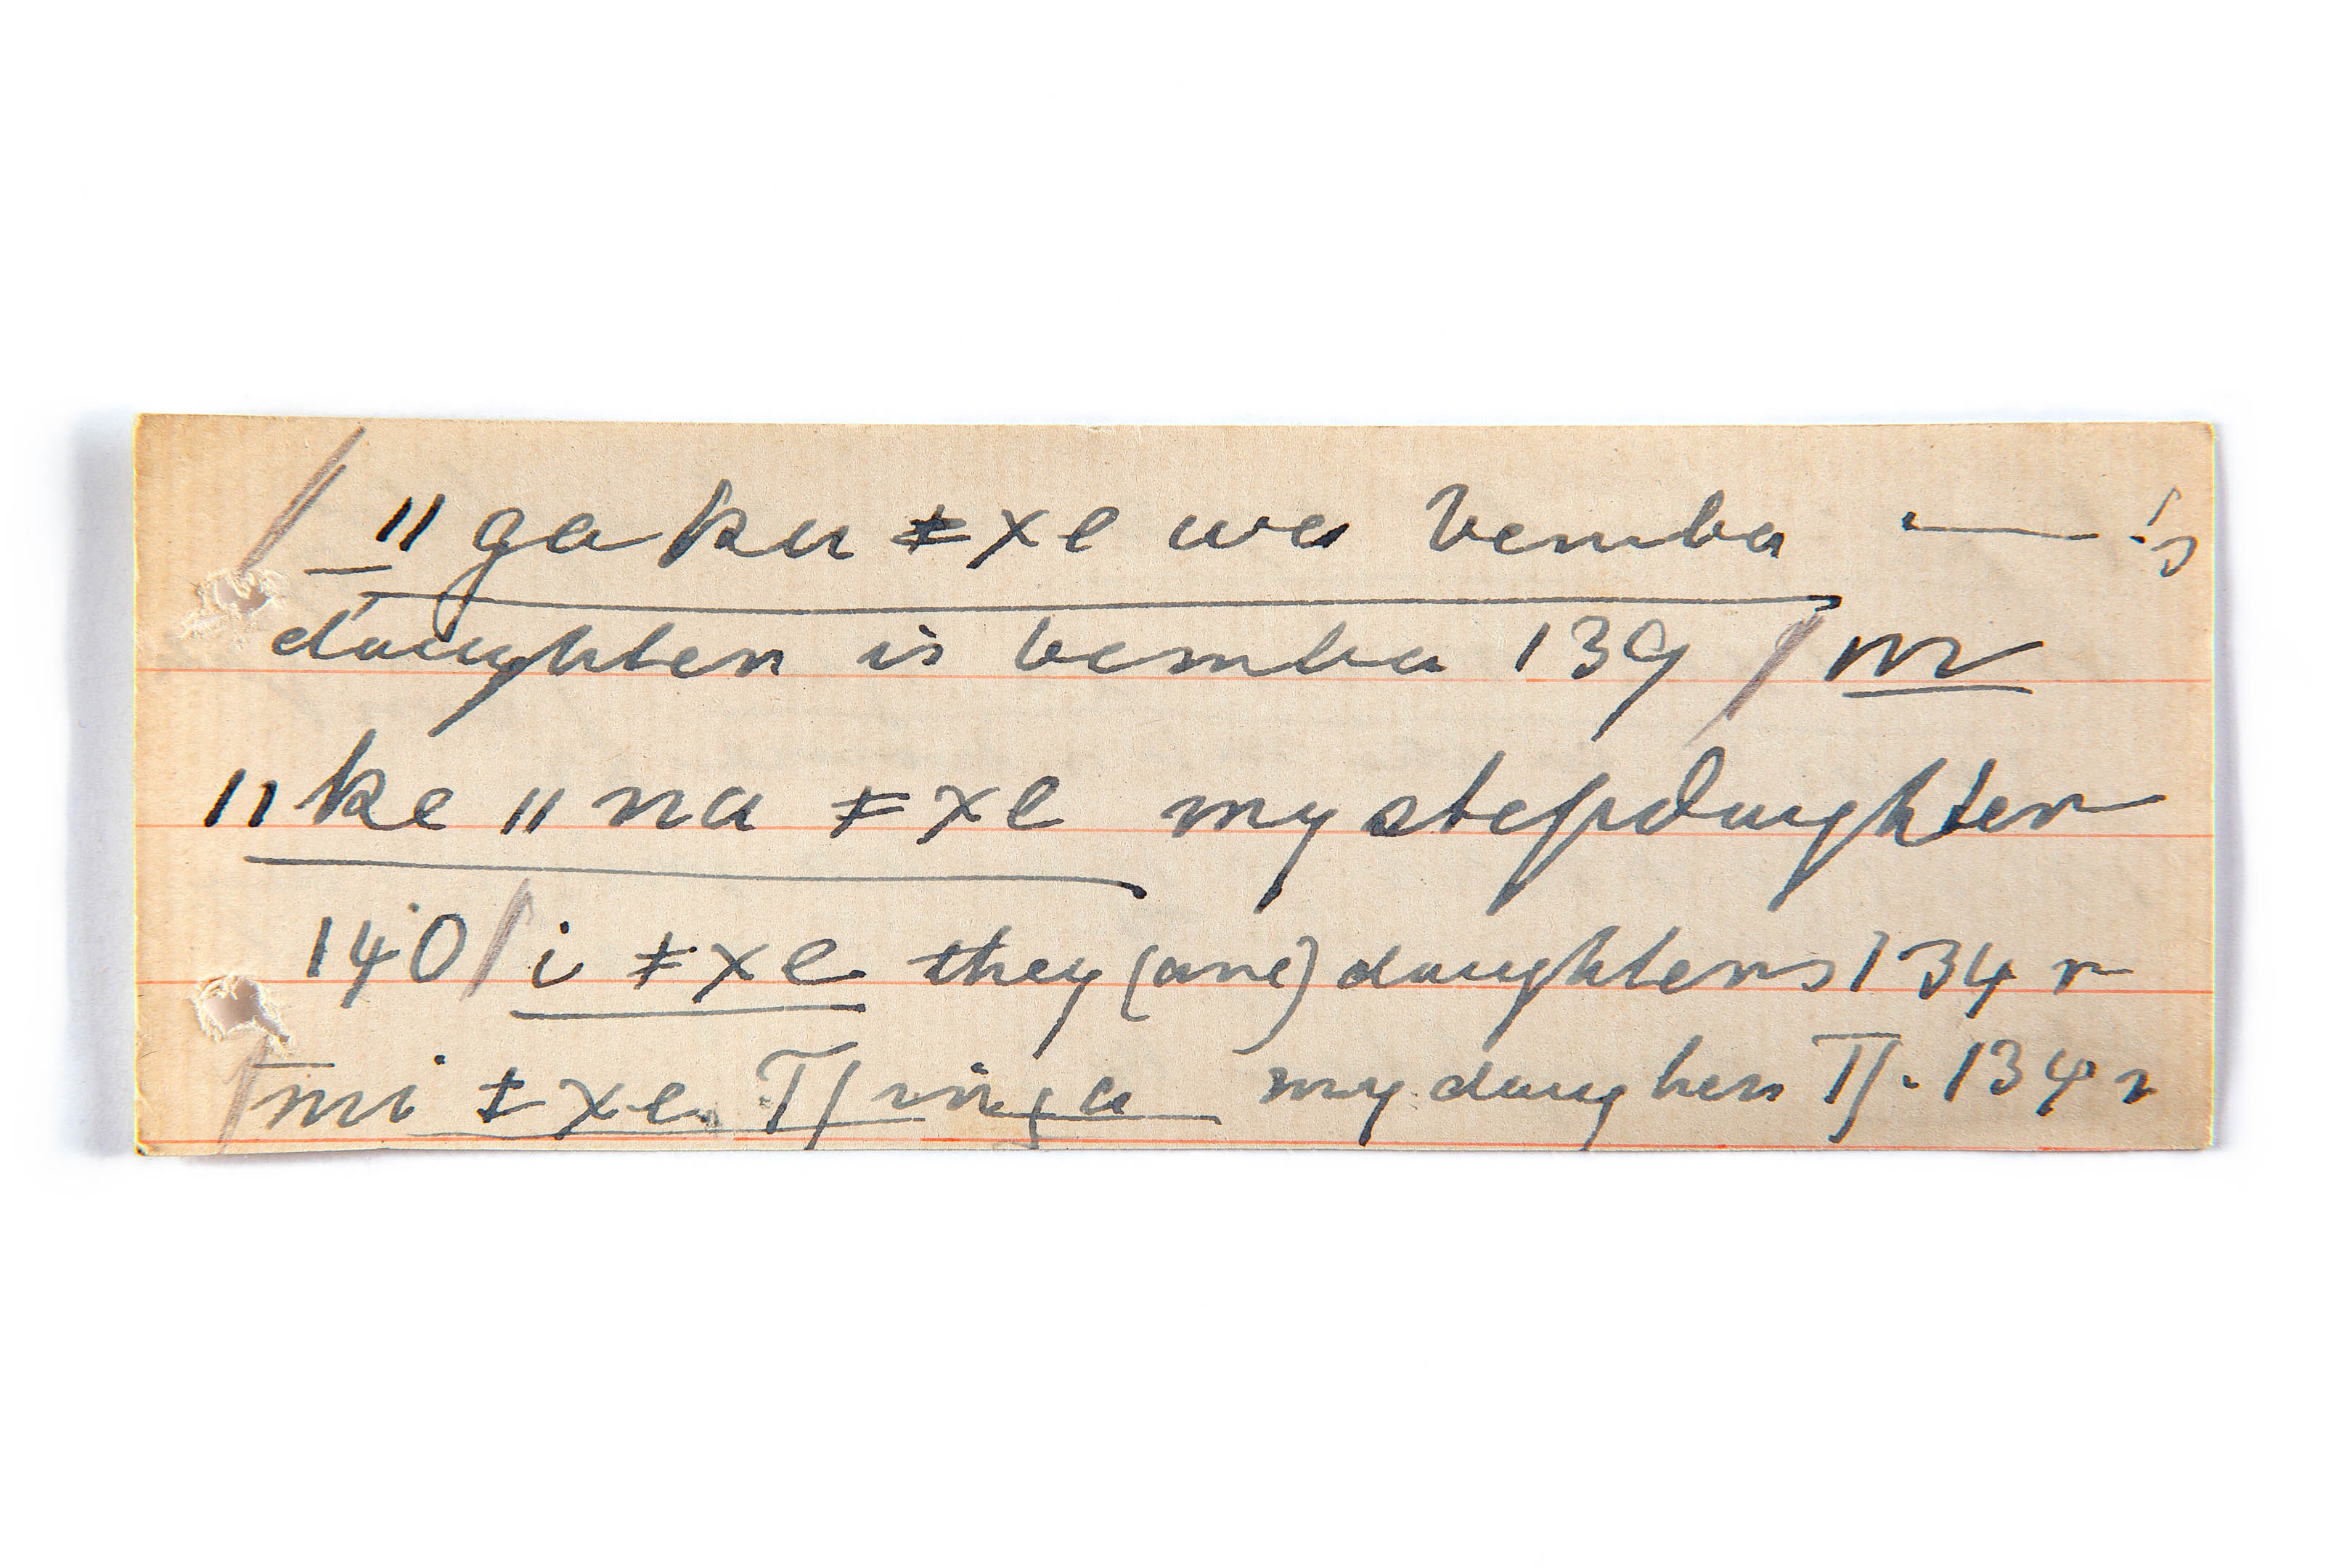 / _ ǁ gaku ǂxe we bemba — 's
daughter is bemba 139 / m
ǁke ǁna ǂxe my stepdaughter
140 / i ǂxe they (are) daughters 134 r
/ mi ǂxe my daugher 134 r